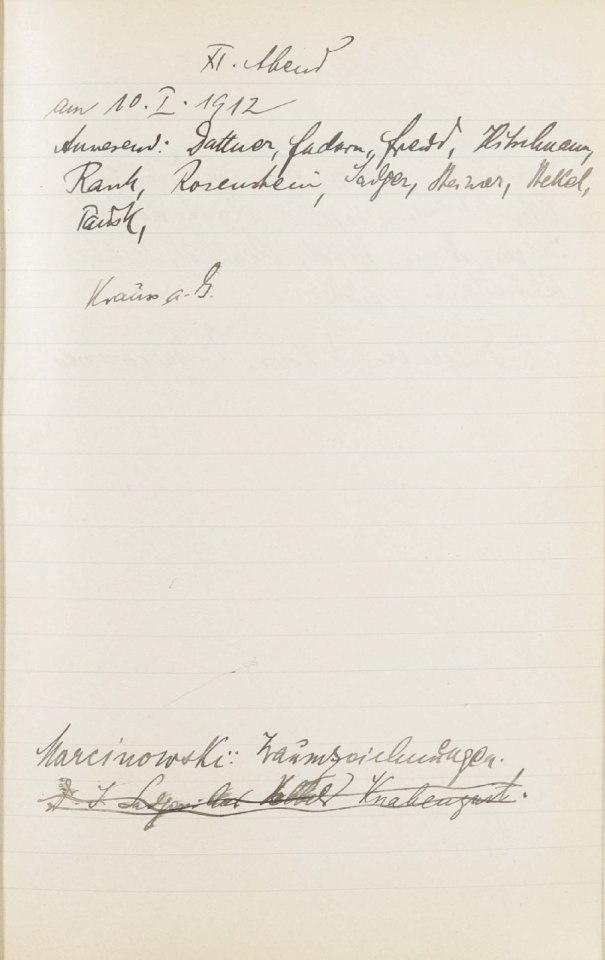 XI. Abend
am 10. I. 1912
Anwesend: Dattner, Federn, Freud, Hitschmann,
Rank, Rosenstein, Sadger, Steiner, Stekel,
Tausk,
Krauss a. G.
Marcinowski: Traumzeichnungen.